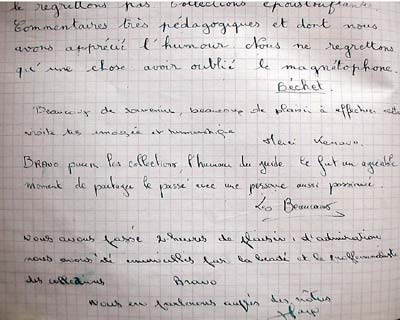 le regrettons pas Collections époustouflante.
Commentaires très pédagogiques et dont nous
avons apprécié l'humour. Nous ne regrettons
qu'une chose avoir oublié le magnétophone.
Béchet.
Beaucoup de souvenirs, beaucoup de plaisir à effectuer cette
visite très imagée et humoristique
Merci
BRAVO pour les collections, l'humour du guide. Ce fut un agréable
moment de partager le passé avec une personne aussi passionnée.
Les Beaucamps
Nous avons passé 2 heures de plaisirs, d'admiration
nous avons été émerveillés par la beauté et la
des collections Bravo
Nous en parlerons auprès des nôtres